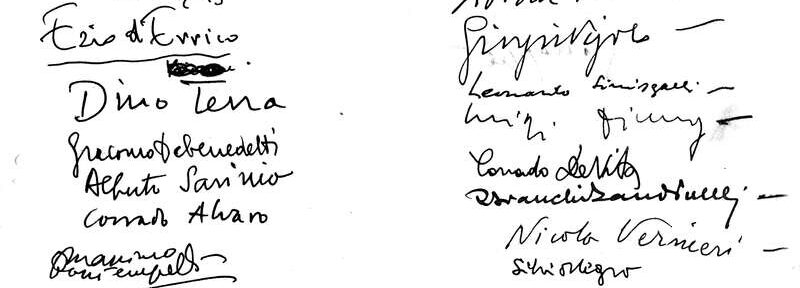 Ezio d'Errico
Dino Terra
Giacomo Debenedetti
Alberto Savinio
Corrado Alvaro
Massimo
Bontempelli
Vigolo
Leonardo Sinisgalli
Luigi
Corrado De Vita
R Bianchi Bandinelli
Nicola
Silvio Negro